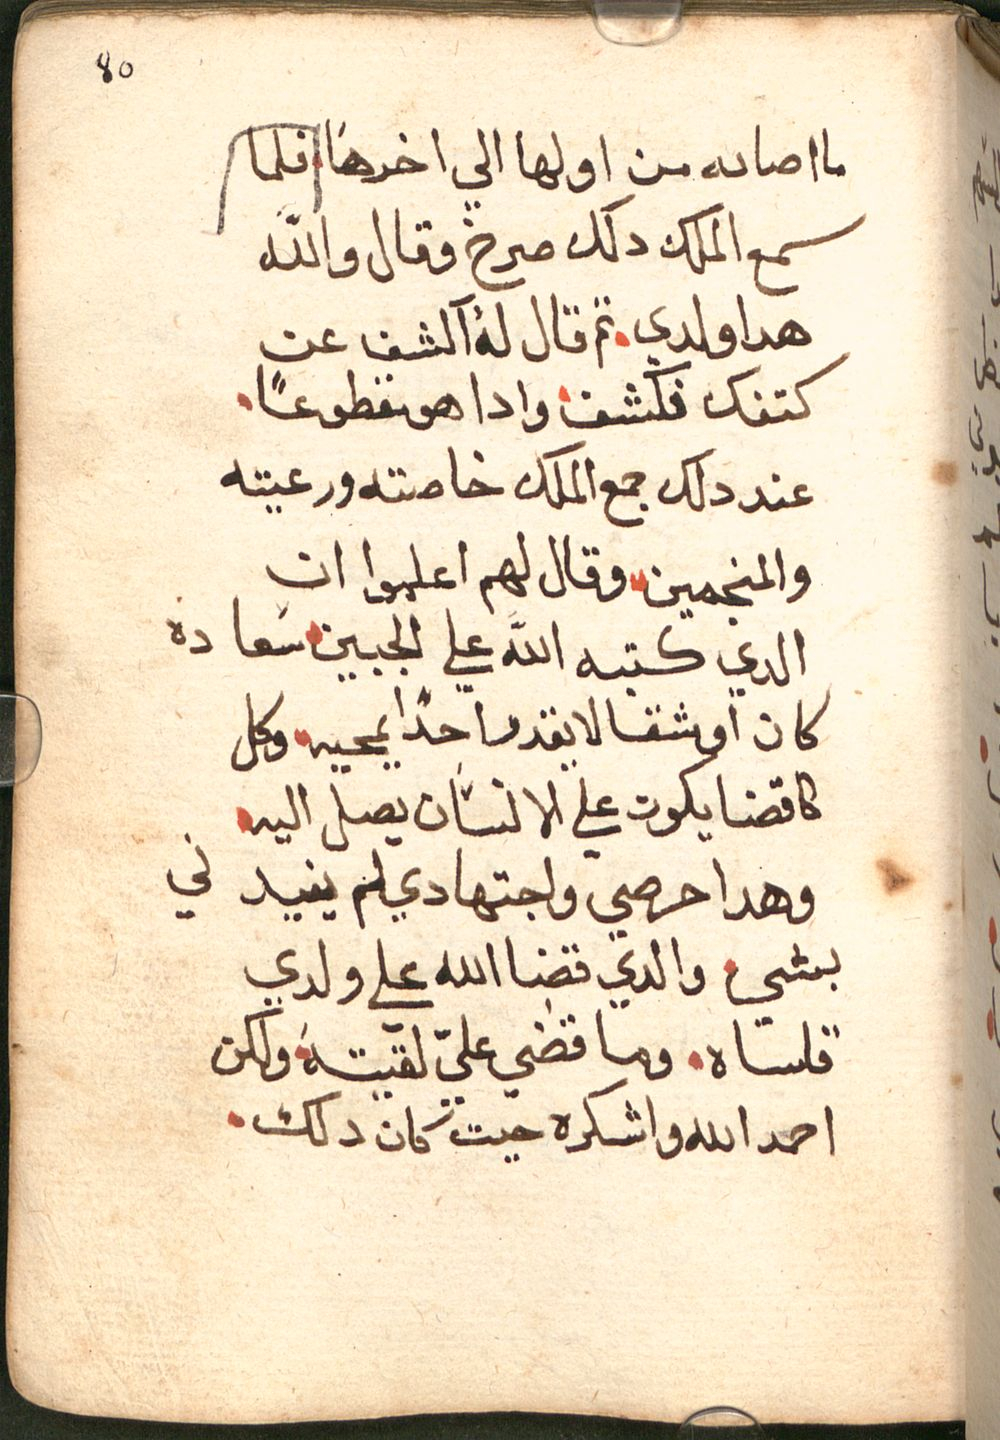 80
ما اصابه من اولها الي اخرها فلما
سمع الملك دلك صرخ وقال والله
هدا ولدي. تم قال له اكشف عن
كتفك فكشف وادا هو مقطوعًا.
عند دلك جمع الملك خاصته ورعيته
والمنجمين وقال لهم اعلموا ان
الدي كتبه الله علي الجبين سعاده
كان او شقا لا يقدر احدًا يمحيه وكل
كاقضا يكون علي الانسان يصل اليه
وهدا حرصي واجتهادي لم يفيدني
بشي والدي قضا الله علي ولدي
قاساه. وما قضي عليّ لقيته ولكن
احمد الله واشكره حيت كان دلك.